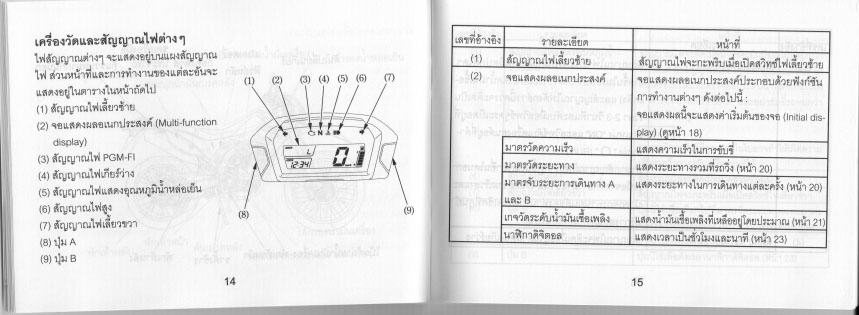 เครื่องวัดและสัญญาณไฟต่างๆ
ไฟสัญญาณต่างๆ จะแสดงอยู่บนแผงสัญญาณ
ไฟ ส่วนหน้าที่และการทำงานของแต่ละอันจะ
แสดงอยู่ในตารางในหน้าถัดไป
(1) สัญญาณไฟเลี้ยวซ้าย
(2) จอแสดงผลอเนกประสงค์ (Multi-function
display)
(3) สัญญาณไฟ PGM-FI
(4) สัญญาณไฟเกียร์ว่าง
(5) สัญญาณไฟแสดงอุณหภูมิน้ำหล่อเย็น
(6) สัญญาณไฟสูง
(7) สัญญาณไฟเลี้ยวขวา
(8) ปุ่ม A
(9) ปุ่ม B
(1) (2) (3) (4) (5) (6) (7)
N
L
12:34
0
(8) (9)
14
เลขที่อ้างอิง รายละเอียด หน้าที่
(1) สัญญาณไฟเลี้ยวซ้าย สัญญาณไฟจะกะพริบเมื่อเปิดสวิทช์ไฟเลี้ยวซ้าย
(2) จอแสดงผลอเนกประสงค์ จอแสดงผลอเนกประสงค์ประกอบด้วยฟังก์ชัน
การทำงานต่างๆ ดังต่อไปนี้ :
จอแสดงผลนี้จะแสดงค่าเริ่มต้นของจอ (Initial dis-
play) (ดูหน้า 18)
มาตรวัดความเร็ว แสดงความเร็วในการขับขี่
มาตรวัดระยะทาง แสดงระยะทางรวมที่รถวิ่ง (หน้า 20)
มาตรจับระยะการเดินทาง A แสดงระยะทางในการเดินทางแต่ละครั้ง (หน้า 20)
และ B
เกจวัดระดับน้ำมันเชื้อเพลิง แสดงน้ำมันเชื้อเพลิงที่เหลืออยู่โดยประมาณ (หน้า 21)
นาฬิกาดิจิตอล แสดงเวลาเป็นชั่วโมงและนาที (หน้า 23)
15